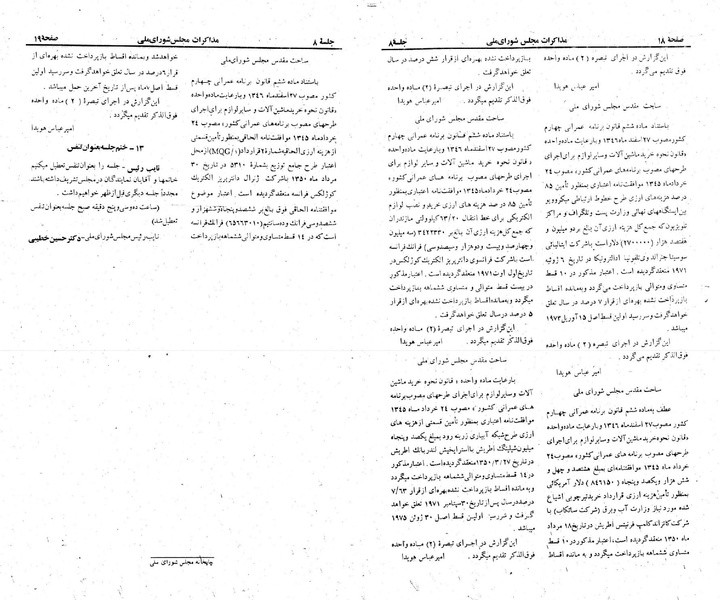 صفحهٔ ۱۸
مذاکرات مجلس شورای ملی
جلسهٔ ۸
این گزارش در اجرای تبصرهٔ (۲) ماده واحده
فوق تقدیم می‌گردد .
امیر عباس هویدا
ساحت مقدس مجلس شورای ملی
باستناد ماده ششم قانون برنامه عمرانی چهارم
کشور مصوب ۲۷ اسفند ماه ۱۳۴۶ و با رعایت ماده واحده
« قانون نحوه خرید ماشین آلات و سایر لوازم برای اجرای
طرحهای مصوب برنامه های عمرانی کشور » مصوب ۲۴
خرداد ماه ۱۳۴۵ موافقت نامه اعتباری بمنظور تأمین ۸۵
درصد هزینه‌های ارزی طرح خطوط ارتباطی میکروویو
بین ایستگاههای نهائی وزارت پست و تلگراف و مراکز
تلویزیون که جمع کل هزینه ارزی آن بالغ بر دو میلیون و
هفتصد هزار (۲۷۰۰۰۰۰) دلار است با شرکت ایتالیائی
۱۹۷۱ منعقد گردیده است . اعتبار مذکور در ۱۰ قسط
متساوی و متوالی بازپرداخت می‌گردد و به مانده اقساط
بازپرداخت نشده بهره‌ای از قرار ۷ درصد در سال تعلق
خواهد گرفت و سر رسید اولین قسط اصل ۱۵ آوریل ۱۹۷۳
میباشد .
این گزارش در اجرای تبصره (۲) ماده واحده
فوق الذکر تقدیم می گردد .
امیر عباس هویدا
ساحت مقدس مجلس شورای ملی
عطف به ماده ششم قانون برنامه عمرانی چهارم
کشور مصوب ۲۷ اسفند ماه ۱۳۴۶ و با رعایت ماده واحده
« قانون نحوه خرید ماشین آلات و سایر لوازم برای اجرای
طرحهای مصوب برنامه های عمرانی کشور » مصوب ۲۴
خرداد ماه ۱۳۴۵ موافقتنامه‌ای بمبلغ هشتصد و چهل و
شش هزار و یکصد و پنجاه (۸۴۶۱۵۰) دلار آمریکائی
بمنظور تأمین هزینه ارزی قرارداد خرید تیر چوبی اشباع
شده مورد نیاز وزارت آب و برق
۱۳۵۰ منعقد گردیده است، اعتبار مذکور در ۱۰ قسط
متساوی ششماهه بازپرداخت میگردد و به مانده اقساط
بازپرداخت نشده بهره‌ای از قرار شش درصد در سال
تعلق خواهد گرفت .
این گزارش در اجرای تبصره (۲) ماده واحده
فوق الذکر تقدیم میگردد .
امیر عباس هویدا
ساحت مقدس مجلس شورای ملی
باستناد ماده ششم قانون برنامه عمرانی چهارم
کشور مصوب ۲۷ اسفند ماه ۱۳۴۶ و با رعایت ماده واحده
« قانون نحوه خرید ماشین آلات و سایر لوازم برای
اجرای طرحهای مصوب برنامه های عمرانی کشور »
مصوب ۲۴ خرداد ماه ۱۳۴۵ موافقت نامه اعتباری بمنظور
تأمین ۸۵ درصد هزینه های ارزی خرید و نصب لوازم
الکتریکی برای خط انتقال ۶۳/۲۰ کیلوولتی مازندران
که جمع کل هزینه ارزی آن بالغ بر ۳۴۲۲۳۳۰ (سه میلیون
و چهارصد و بیست و دو هزار و سیصد و سی) فرانک فرانسه
است با شرکت فرانسوی دانتر پریز الکتریک کوژلکس در
تاریخ اول اوت ۱۹۷۱ منعقد گردیده است . اعتبار مذکور
در بیست قسط و متوالی و متساوی ششماهه بازپرداخت
میگردد و به مانده اقساط بازپرداخت نشده بهره‌ای از قرار
۵ درصد در سال تعلق خواهد گرفت .
این گزارش در اجرای تبصرهٔ (۲) ماده واحده
فوق الذکر تقدیم میگردد . امیر عباس هویدا
ساحت مقدس مجلس شورای ملی
با رعایت ماده واحده « قانون نحوه خرید ماشین
آلات و سایر لوازم برای اجرای طرحهای مصوب برنامه
های عمرانی کشور » مصوب ۲۴ خرداد ماه ۱۳۴۵
موافقت نامه اعتباری بمنظور تأمین قسمتی از هزینه های
ارزی طرح شبکه آبیاری زرینه رود بمبلغ یکصد و پنجاه
میلیون شیلینگ اطریش با استرایخیش لندربانک اطریش
در تاریخ ۱۳۵۰/۳/۲۷ منعقد گردیده است . اعتبار مذکور
در ۱۴ قسط متساوی و متوالی ششماهه بازپرداخت میگردد
و به مانده اقساط بازپرداخت نشده بهره‌ای از قرار ۷/۶۳
درصد در سال پس از تاریخ ۳۰ سپتامبر ۱۹۷۱ تعلق خواهد
گرفت و سر رسید اولین قسط اصل ۳۰ ژوئن ۱۹۷۵
میباشد .
این گزارش در اجرای تبصرهٔ (۲) ماده واحده
فوق الذکر تقدیم میگردد . امیر عباس هویدا
جلسهٔ ۸
مذاکرات مجلس شورای ملی
صفحهٔ ۱۹
ساحت مقدس مجلس شورای ملی
باستناد ماده ششم قانون برنامه عمرانی چهارم
کشور مصوب ۲۷ اسفند ماه ۱۳۴۶ و با رعایت ماده واحده
« قانون نحوه خرید ماشین آلات و سایر لوازم برای اجرای
طرحهای مصوب برنامه های عمرانی کشور » مصوب ۲۴
خرداد ماه ۱۳۴۵ موافقت نامه الحاقی بمنظور تأمین قسمتی
از هزینه ارزی الحاقیه شماره ۲ قرارداد (MQC/۰) از محل
اعتبار طرح جامع توزیع بشماره ۵۳۱۰ در تاریخ ۳۰
مرداد ماه ۱۳۵۰ با شرکت ژنرال دانتر پریز الکتریک
کوژلکس فرانسه منعقد گردیده است . اعتبار موضوع
موافقتنامه الحاقی فوق بالغ بر ششصد و پنجاه و شش هزار و
سیصد و سی فرانک و ده سانتیم (۶۵۶۳۳۰٫۱۰) فرانک فرانسه
است که در ۱۴ قسط متساوی و متوالی ششماهه بازپرداخت
خواهد شد و به مانده اقساط بازپرداخت نشده بهره‌ای از
قرار ۶ درصد در سال تعلق خواهد گرفت و سر رسید اولین
قسط اصل ۶ ماه پس از تاریخ آخرین حمل میباشد .
این گزارش در اجرای تبصره (۲) ماده واحده
فوق الذکر تقدیم میگردد .
امیر عباس هویدا
۱۳ - ختم جلسه بعنوان تنفس
نایب رئیس - جلسه را بعنوان تنفس تعطیل میکنیم
خانمها و آقایان نمایندگان در مجلس تشریف داشته باشند
مجدداً جلسه دیگری قبل از ظهر خواهیم داشت .
(ساعت ده و سی و پنج دقیقه صبح جلسه بعنوان تنفس
تعطیل شد)
نایب رئیس مجلس شورای ملی - دکتر حسین خطیبی
چاپخانه مجلس شورای ملی